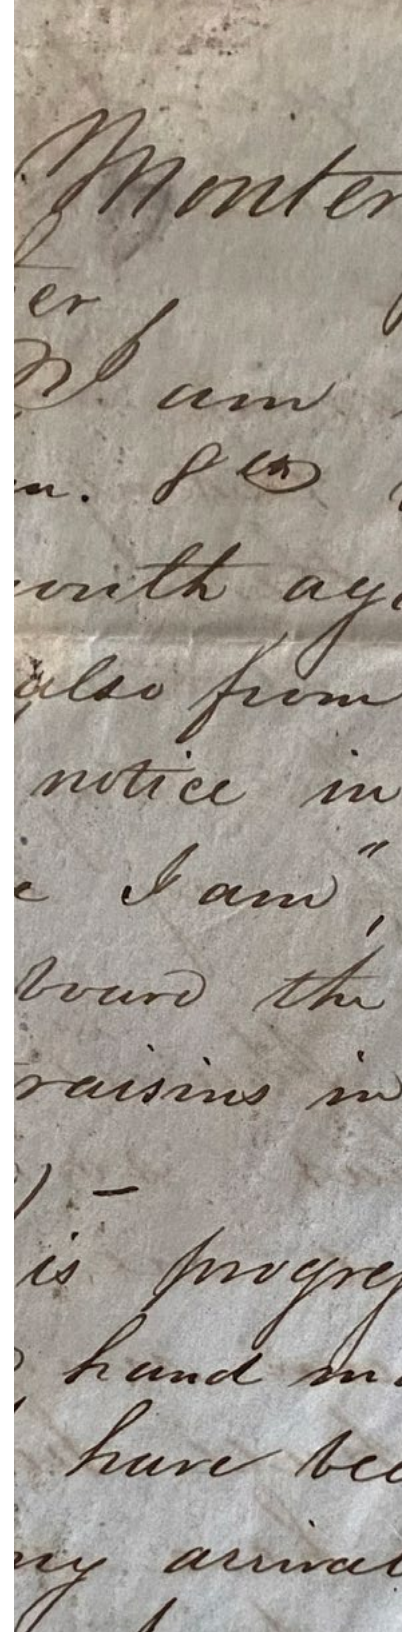 Monter
er
I am
n. 8th
onth ago
also from
notice in
e I am",
board the
raisins in
) -
is progres
hand ma
have bee
my arrival